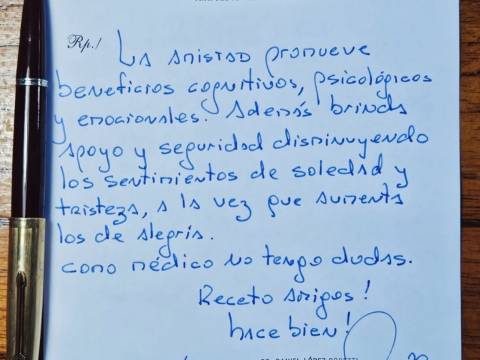 Rp./
La amistad promueve
beneficios cognitivos, psicológicos
y emocionales. Además brinda
apoyo y seguridad disminuyendo
los sentimientos de soledad y
tristeza, a la vez que aumenta
los de alegría.
como médico no tengo dudas.
Receto amigos!
hace bien!